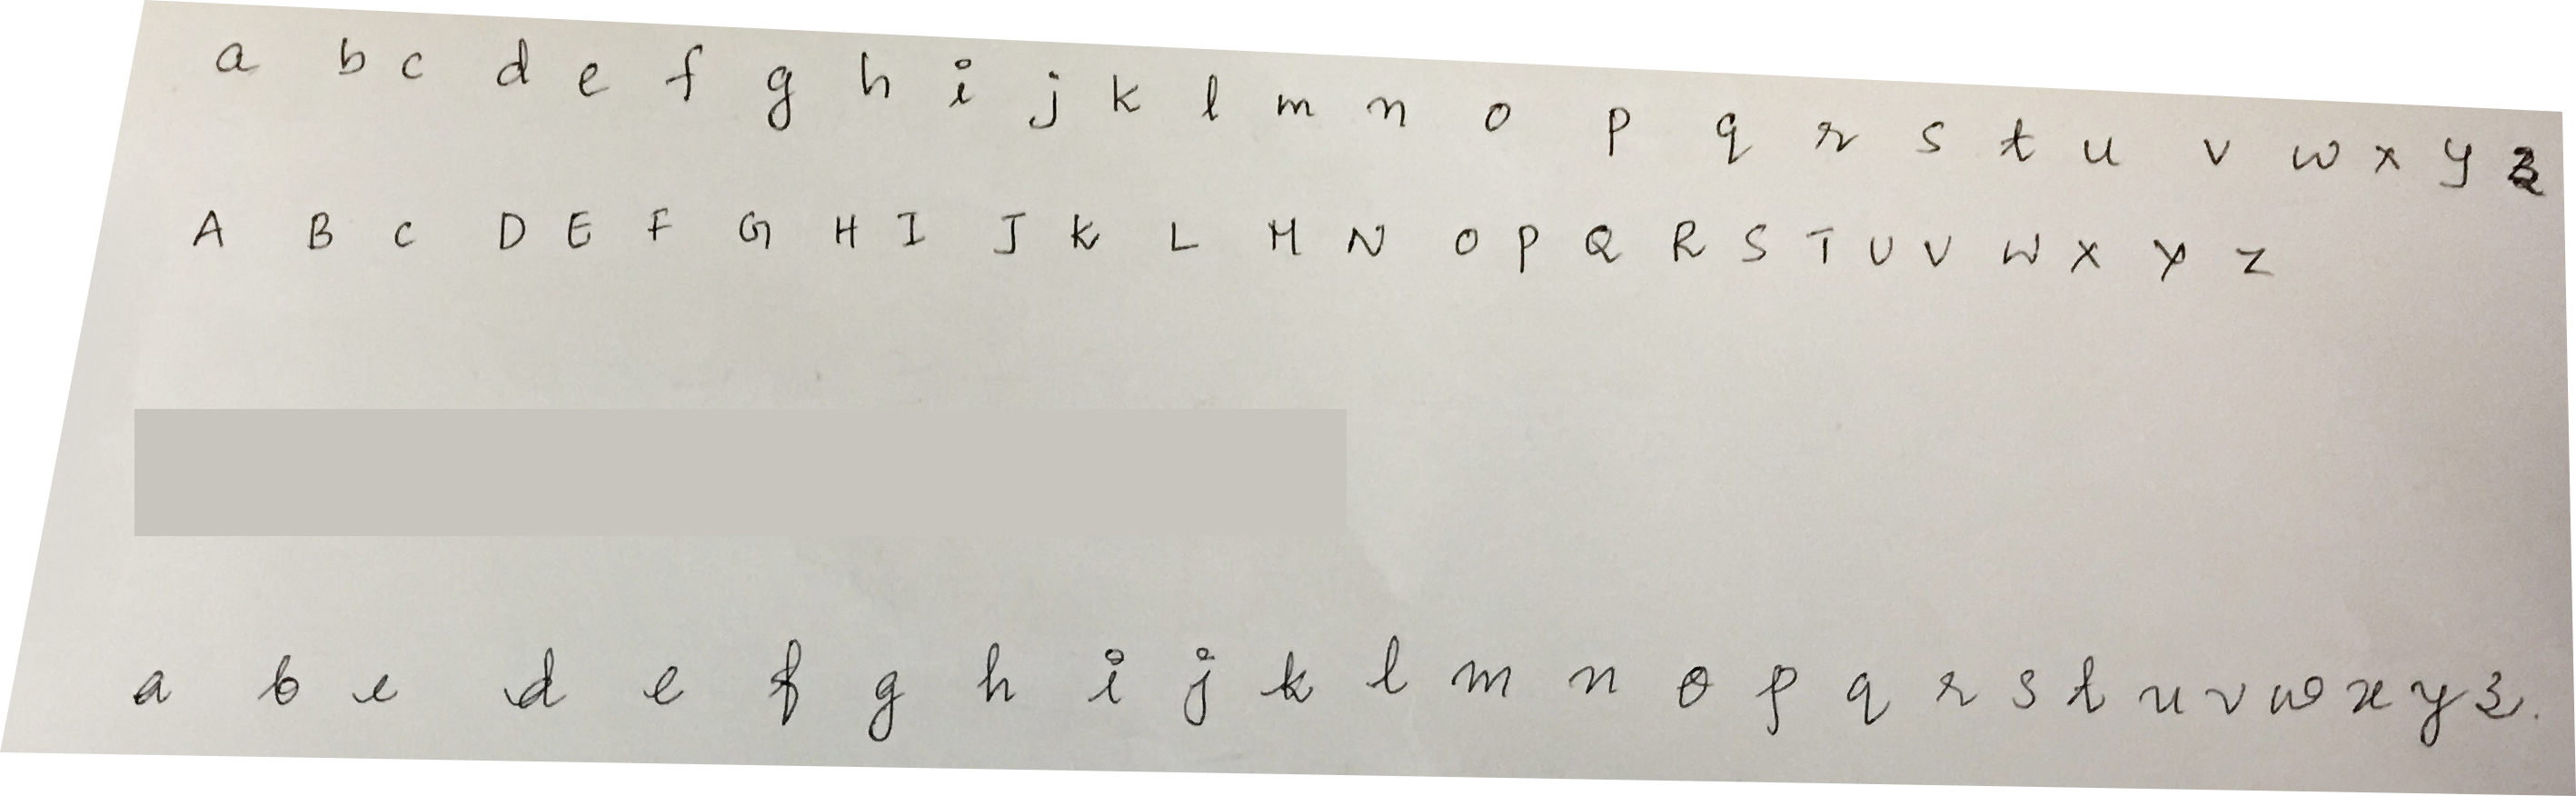 a b c d e f g h i j k l m n o p q r s t u v w x y z
A B C D E F G H I J K L M N O P Q R S T U V W X Y Z
a b c d e f g h i j k l m n o p q r s t u v w x y z.